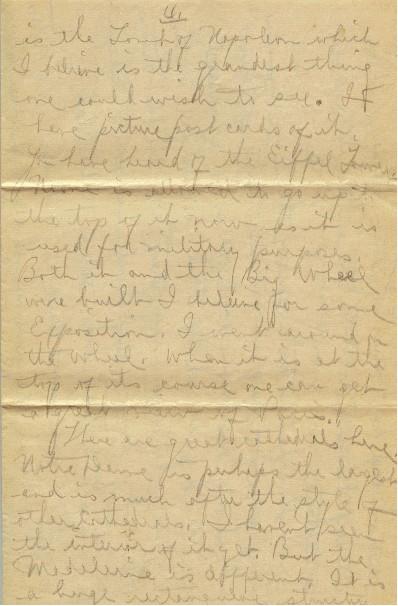 6.
is the Tomb of Napoleon which
I believe is the grandest thing
one could wish to see. I
have picture post cards of it.
You have heard of the Eiffel Tower.
is allowed to go up to
the top of it now as it is
used for military purposes.
Both it and the Big Wheel
were built I believe for some
Exposition. I went around on
the wheel. When it is at the
top of its course one can get
a great view of Paris.
There are great cathedrals here.
Notre Dame is perhaps the largest
and is much after the style of
other Cathedrals. I havent seen
the interior of it yet. But the
Madeleine is different. It is
a huge rectangular structure